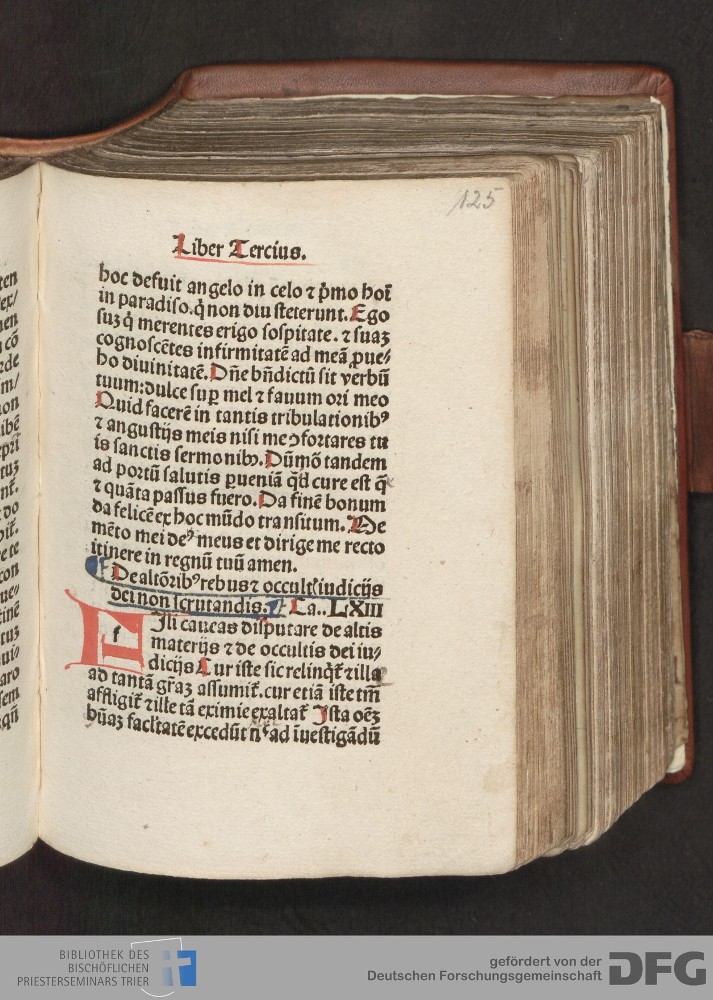 125
Liber Tercius.
hoc defuit angelo in celo ⁊ p̄mo hoī
in paradiso. q̄ non diu steterunt. Ego
suꝫ q̄ merentes erigo sospitate. ⁊ suaꝫ
cognoscētes infirmitatē ad meā ꝓue/
ho diuinitatē. Dn̄e bn̄dictū sit verbū
tuum: dulce suꝑ mel ⁊ fauum ori meo
Quid facerē in tantis tribulationibꝰ
⁊ angustijs meis nisi me ↄfortares tu
is sanctis sermonibꝫ. Dūmō tandem
ad portū salutis ꝑueniā qͥd cure est q̄
⁊ quāta passus fuero. Da finē bonum
da felicē ex hoc mūdo transitum. Me
mēto mei deꝰ meus et dirige me recto
itinere in regnū tuū amen.
De altōribꝰ rebus ⁊ occultꝭ iudicijs
dei non scrutandis. Ca.. LXIII
f
Ili caueas disputare de altis
materijs ⁊ de occultis dei iu/
dicijs Cur iste sic relinqͥt̄ ⁊ illa
ad tantā gr̄aꝫ assumit̄. cur etiā iste tm̄
affligit̄ ⁊ ille tā eximie exaltat̄ Ista oēꝫ
hūaꝫ facl̄tatē excedūt n̄ ad īuestigādū
ten
ex/
nen
cō
rde
m/
ion
ibē
epri
tuꝫ
nt̄.
do
bit̄.
ete
con
ue/
tinē
tuꝫ
ui/
aro
sem
qn̄
BIBLIOTHEK DES
BISCHÖFLICHEN
PRIESTERSEMINARS TRIER
gefördert von der
Deutschen Forschungsgemeinschaft
DFG